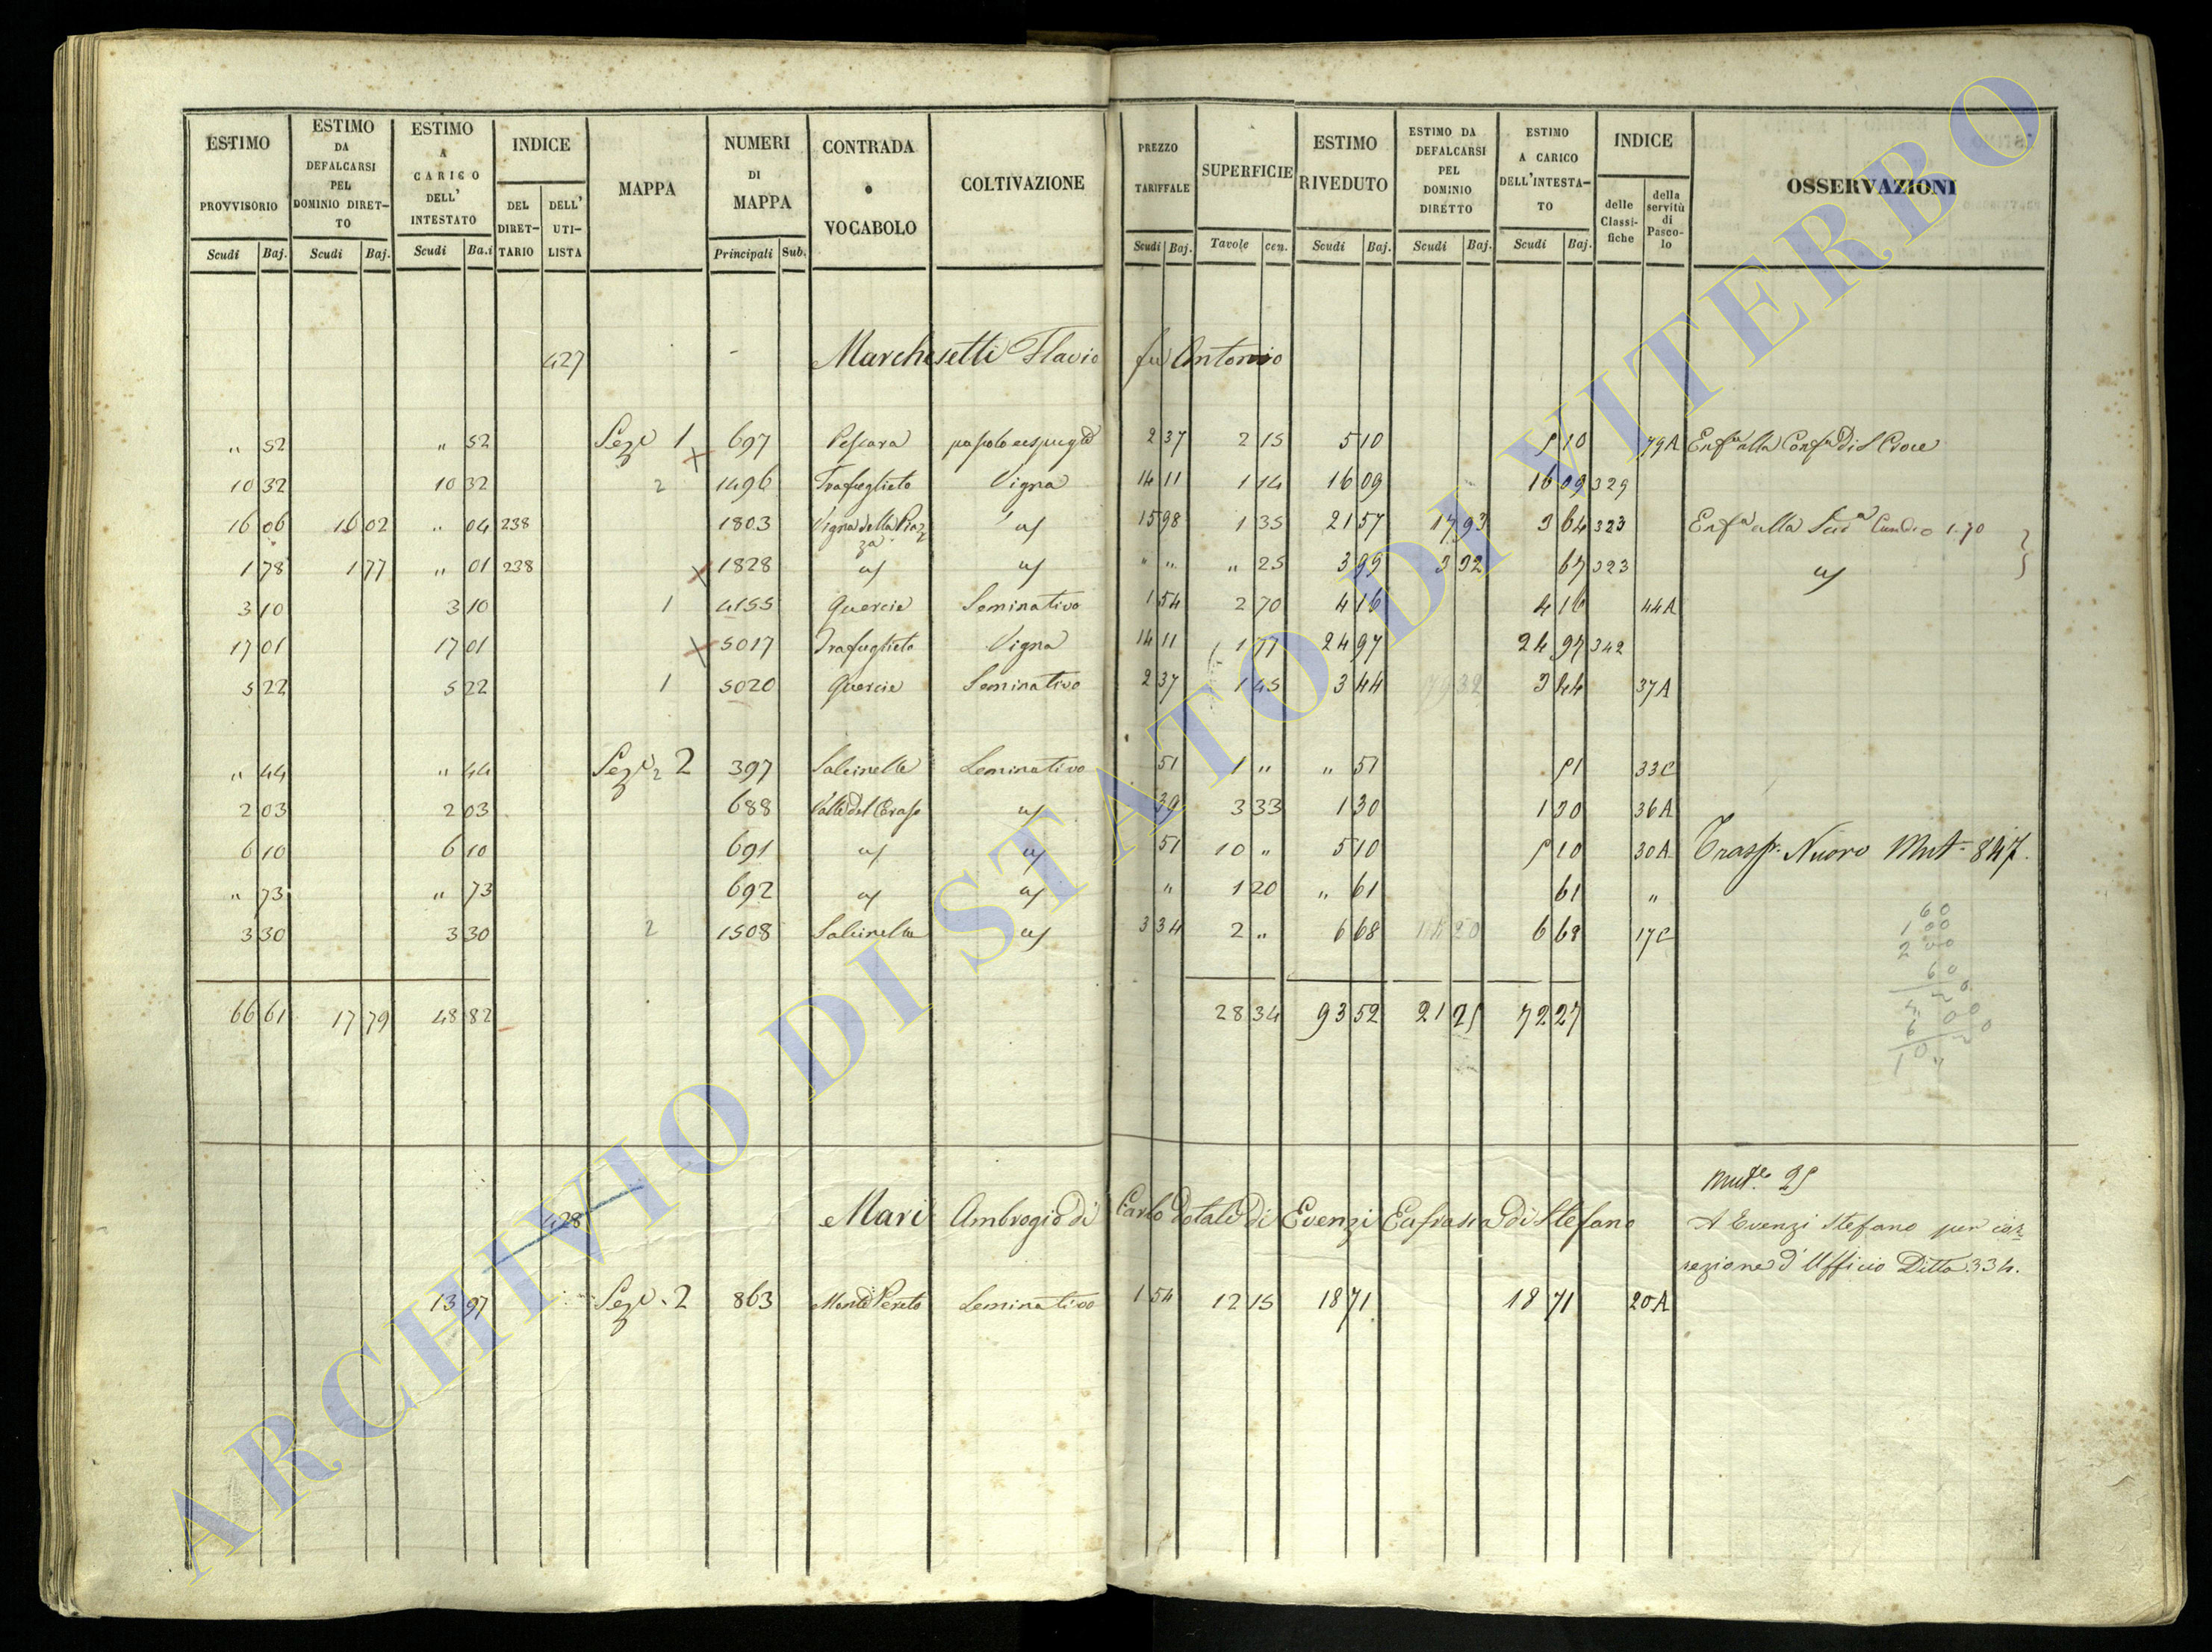 ESTIMO PROVVISORIO Scudi Baj.
ESTIMO DA DEFALCARSI PEL DOMINIO DIRETTO Scudi Baj.
ESTIMO A CARICO DELL' INTESTATO Scudi Ba.i
INDICE DEL DIRETTARIO DELL' UTILISTA
MAPPA
NUMERI DI MAPPA Principali Sub.
CONTRADA o VOCABOLO
COLTIVAZIONE
PREZZO TARIFFALE Scudi Baj.
SUPERFICIE Tavole cen.
ESTIMO RIVEDUTO Scudi Baj.
ESTIMO DA DEFALCARSI PEL DOMINIO DIRETTO Scudi Baj.
ESTIMO A CARICO DELL'INTESTATO Scudi Baj.
INDICE delle Classifiche della servitù di Pascolo
OSSERVAZIONI
427 Marchesetti Flavio fu Antonio
„ 52 „ 52 Sez.e 1 697 Pescara 2 37 2 15 5 10 5 10 79A Enf.a alla Conf.a di S Croce
10 32 10 32 2 1496 Trafuglieto Vigna 14 11 1 14 16 09 16 09 329
16 06 16 02 „ 04 238 1803 Vigna della Piazza 15 98 1 35 21 57 17 93 3 64 323 Enf.a alla 1.70
1 78 1 77 „ 01 238 1828 „ „ „ 25 3 99 3 32 67 323
3 10 3 10 1 4155 Quercie Seminativo 1 54 2 70 4 16 4 16 44A
17 01 17 01 5017 Trafuglieto Vigna 14 11 1 77 24 97 24 97 342
5 22 5 22 1 5020 Quercie Seminativo 2 37 1 45 3 44 3 44 37A
„ 44 „ 44 Sez.e 2 397 Salcinella Seminativo 51 1 „ „ 51 51 33C
2 03 2 03 688 Valle del 39 3 33 1 30 1 30 36A
6 10 6 10 691 51 10 „ 5 10 5 10 30A Trasp. Nuovo Mut. 847.
„ 73 „ 73 692 „ 1 20 „ 61 61 „
3 30 3 30 2 1508 Salcinella 3 34 2 „ 6 68 6 68 17C
66 61 17 79 48 82 28 34 93 52 21 25 72 27
Mut.e 25
428 Mari Ambrogio di Carlo dotale di Evenzi Eufrasia di Stefano A Evenzi Stefano per cor=
rezione d'Ufficio Ditta 334.
13 97 Sez.e 2 863 Monte Pereto Seminativo 1 54 12 15 18 71 18 71 20A
ARCHIVIO DI STATO DI VITERBO